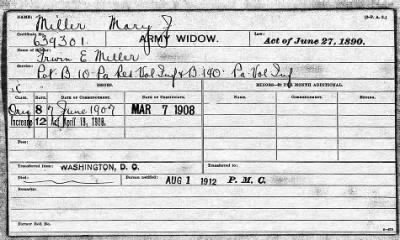 NAME: Miller Mary J (3-P. A. S.)
Certificate No. 639301. ARMY WIDOW. Law: Act of June 27, 1890.
Name of Soldier: Irwin E Miller
Service: Pvt. B. 10 Pa Res Vol Inf & B 190 Pa Vol Inf
ISSUES. MINORS—$2 PER MONTH ADDITIONAL.
CLASS. RATE. DATE OF COMMENCEMENT. DATE OF CERTIFICATE.
Orig 8 7 June 1907 MAR 7 1908
Increase 12 Act April 19, 1908.
Fees:
Transferred from: WASHINGTON, D. C. Transferred to:
Died: Bureau notified: AUG 1 1912 P. M. C.
Remarks:
Former Roll No.